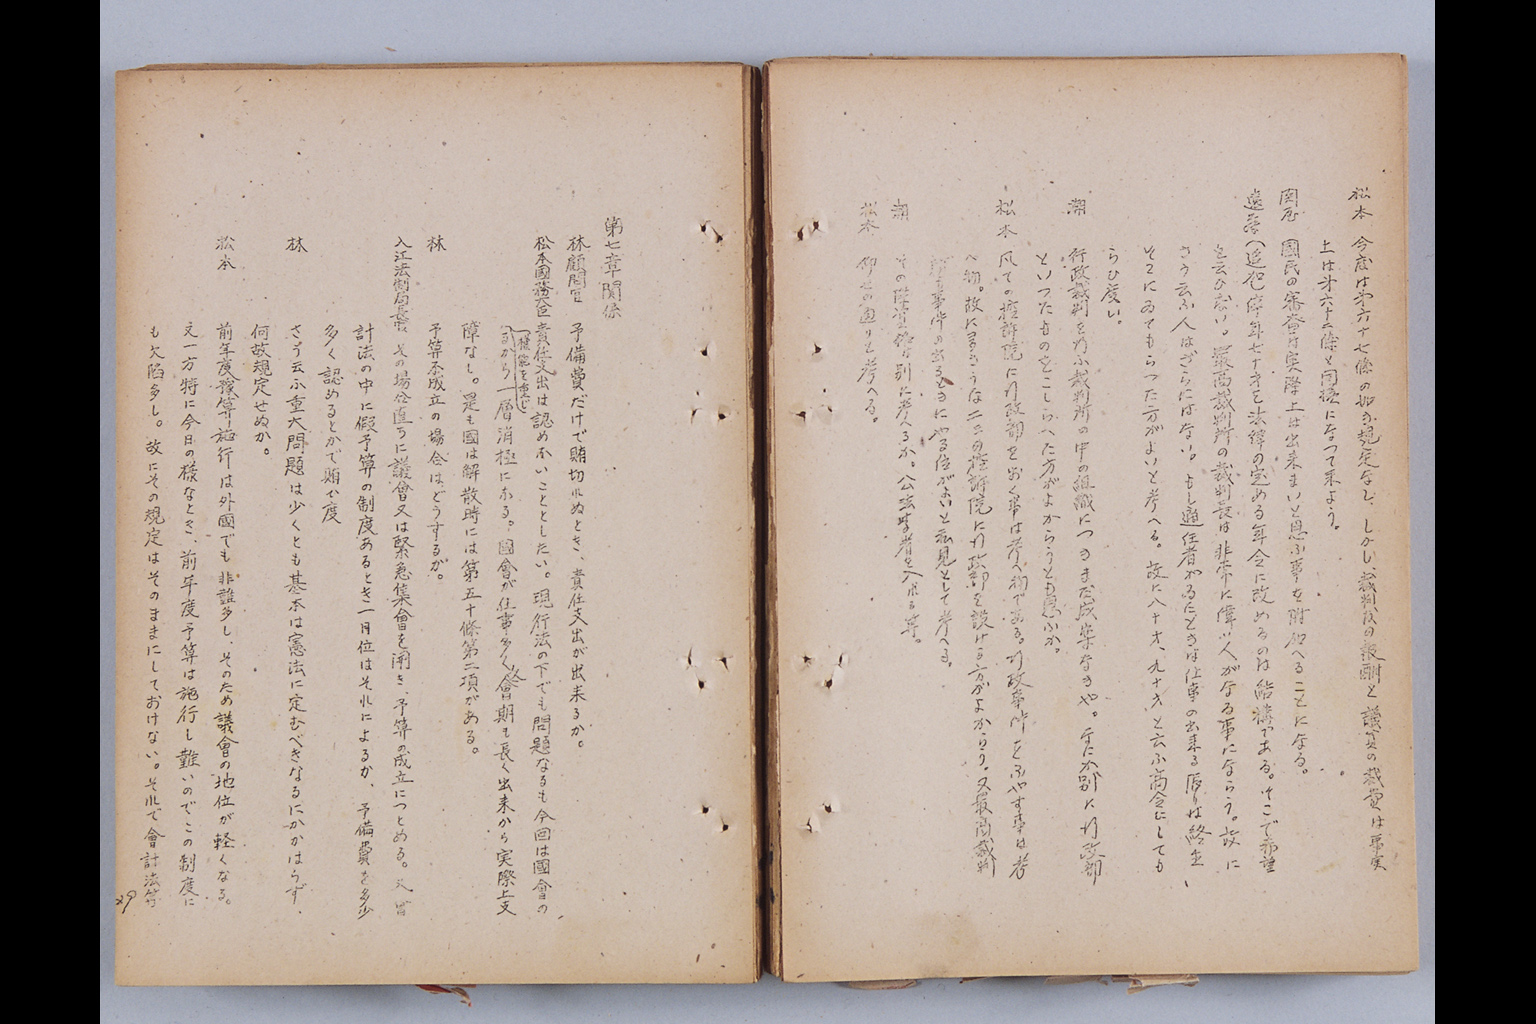 松本 今度は第六十七條の如き規定なし、しかし、裁判官の報酬と議員の歳費は事実
上は第六十二條と同様になつて来よう。
関屋 国民の審査は実際上は出来まいと思ふ事を附加へることになる。
遠藤 追犯 停年七十才を法律の定める年令に改めるのは結構である。そこで希望
を云ひたい。最高裁判所の裁判長は非常に偉い人がなる事にならう。故に
さう云ふ人はざらにはない。もし適任者があるときは仕事の出来る限りは終生、
そこにゐてもらつた方がよいと考へる。故に八十才、九十才と云ふ高令にしても
らひ度い。
潮 行政裁判を行ふ裁判所の中の組織につきまだ成案なきや。何か別に行政部
といつたものをこしらへた方がよからうとも思ふが。
松本 凡ての控訴院に行政部を おく事は考へ物である。行政事件をふやす事は考
へ物。故に まづうな 二三の控訴院に行政部を設ける方がよからう。又最高裁判
事件の出るときにやる位がよいと私見として考へる。
潮 その際資格は別に考へるか。公法学者を入れる等。
松本 仰せの通りと考へる。
第七章関係
林顧問官 予備費だけで賄切れぬとき、責任支出が出来るか。
松本國務大臣 責任支出は認めないこととしたい。現行法の下でも問題なるも今回は國會の
権能を重じ
るから 一層消極になる。國會が仕事多く、會期も長く出来から実際上支
障なし。是も國は解散時には第五十條第二項がある。
林 予算不成立の場合はどうするか。
入江法制局長官 その場合直ちに議會又は緊急集會を開き、予算の成立につとめる。又 會
計法の中に假予算の制度あるとき一月位はそれによるか、予備費を多少
多く認めるとかで賄ひ度
林 さう云ふ重大問題は少くとも基本は憲法に定むべきなるにかかはらず、
何故規定せぬか。
松本 前年度豫算施行は外國でも非難多し、そのため議會の地位が軽くなる。
又一方特に今日の様なとき、前年度予算は施行し難いのでこの制度に
も欠陥多し。故にその規定はそのままにしておけない。それで會計法等
29